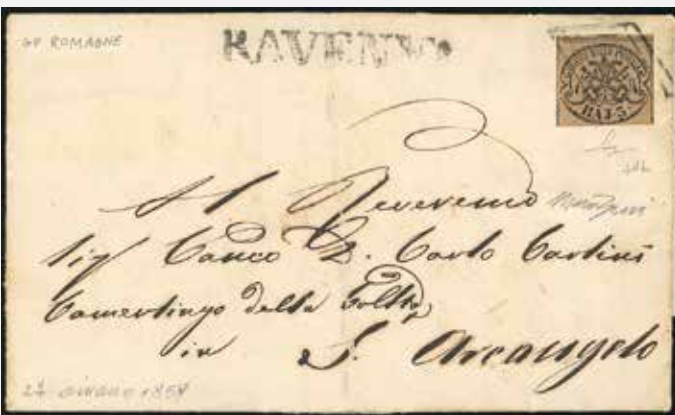 GP ROMAGNE
RAVENNA
BAJ 5
Al Reverendo
Sig Canco D. Carlo Bartini
Camerlingo della Collta
in S. Arcangelo
giugno 1859